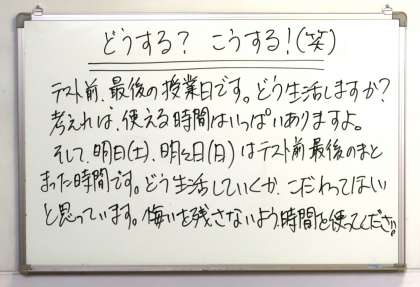 どうする？ こうする！(笑)
テスト前、最後の授業日です。どう生活しますか？
考えれば、使える時間はいっぱいありますよ。
そして、明日(土)、明後日(日)はテスト前最後のまと
まった時間です。どう生活していくか、こだわってほしい
と思っています。悔いを残さないよう、時間を使ってください。